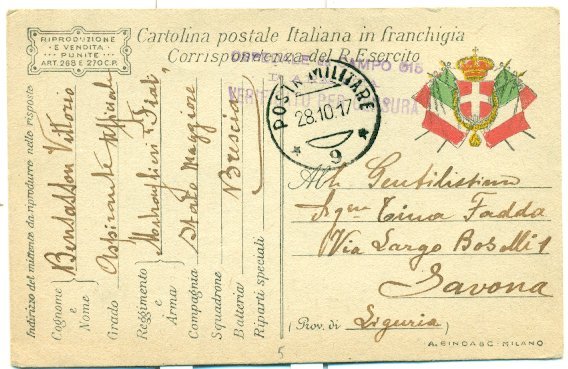 RIPRODUZIONE
E VENDITA
PUNITE
ART. 268 E 270 C.P.
Cartolina postale Italiana in franchigia
Corrispondenza del R. Esercito
CAMPO 015
VERIFICATO PER CENSURA
POSTA MILITARE
28.10.17
9
Indirizzo del mittente da riprodurre nella risposta
Cognome e Nome Bensasson Vittorio
Grado Aspirante Ufficiale
Reggimento e Arma "Fiat"
Compagnia Stato Maggiore
Squadrone
Batteria Brescia
Riparti speciali
All. Gentilissima
Sig.na Tina Fadda
Via Largo Boselli 1
Savona
(Prov. di Liguria)
5
A. BINDA & C. - MILANO